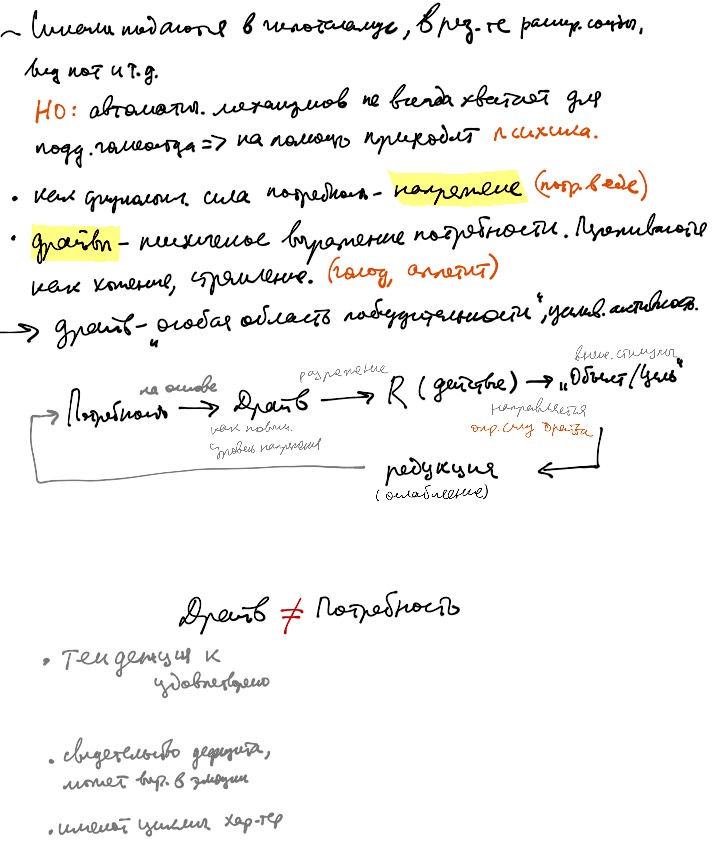 ~ Сигналы подаются в гипоталамус, в рез-те расшир. сосуды,
выд пот и т.д.
НО: автоматич. механизмов не всегда хватает для
подд. гомеостаза => на помощь приходит психика.
• как функцион. сила потребность - напряжение (потр. в еде)
• драйвы - психическое выражение потребности. Переживаются
как хотение, стремление. (голод, аппетит)
→ драйв - „особая область побудительности", усилив. активность.
внеш. стимулы
на основе разряжение
Потребность → Драйв → R (действие) → „Объект/Цель"
как повыш. направляется
уровень напряжения опр. силу драйва
редукция
(ослабление)
Драйв ≠ Потребность
• тенденция к
удовлетворению
• свидетельство дефицита,
может выр. в эмоции
• имеют циклич хар-тер